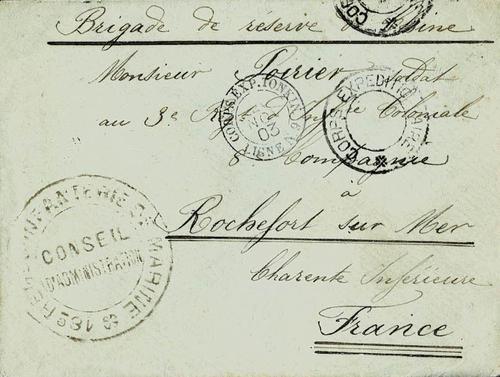 Brigade de réserve de Chine
Monsieur Poirier Soldat
au 3e Rgt d'Infie Coloniale
6 Compagnie
à
Rochefort sur Mer
Charente Inférieure
France
CORPS EXP. TONKIN
20
LIGNE N
CORPS EXPEDITIO
INFANTERIE DE MARINE
CONSEIL
D'ADMINISTRATION